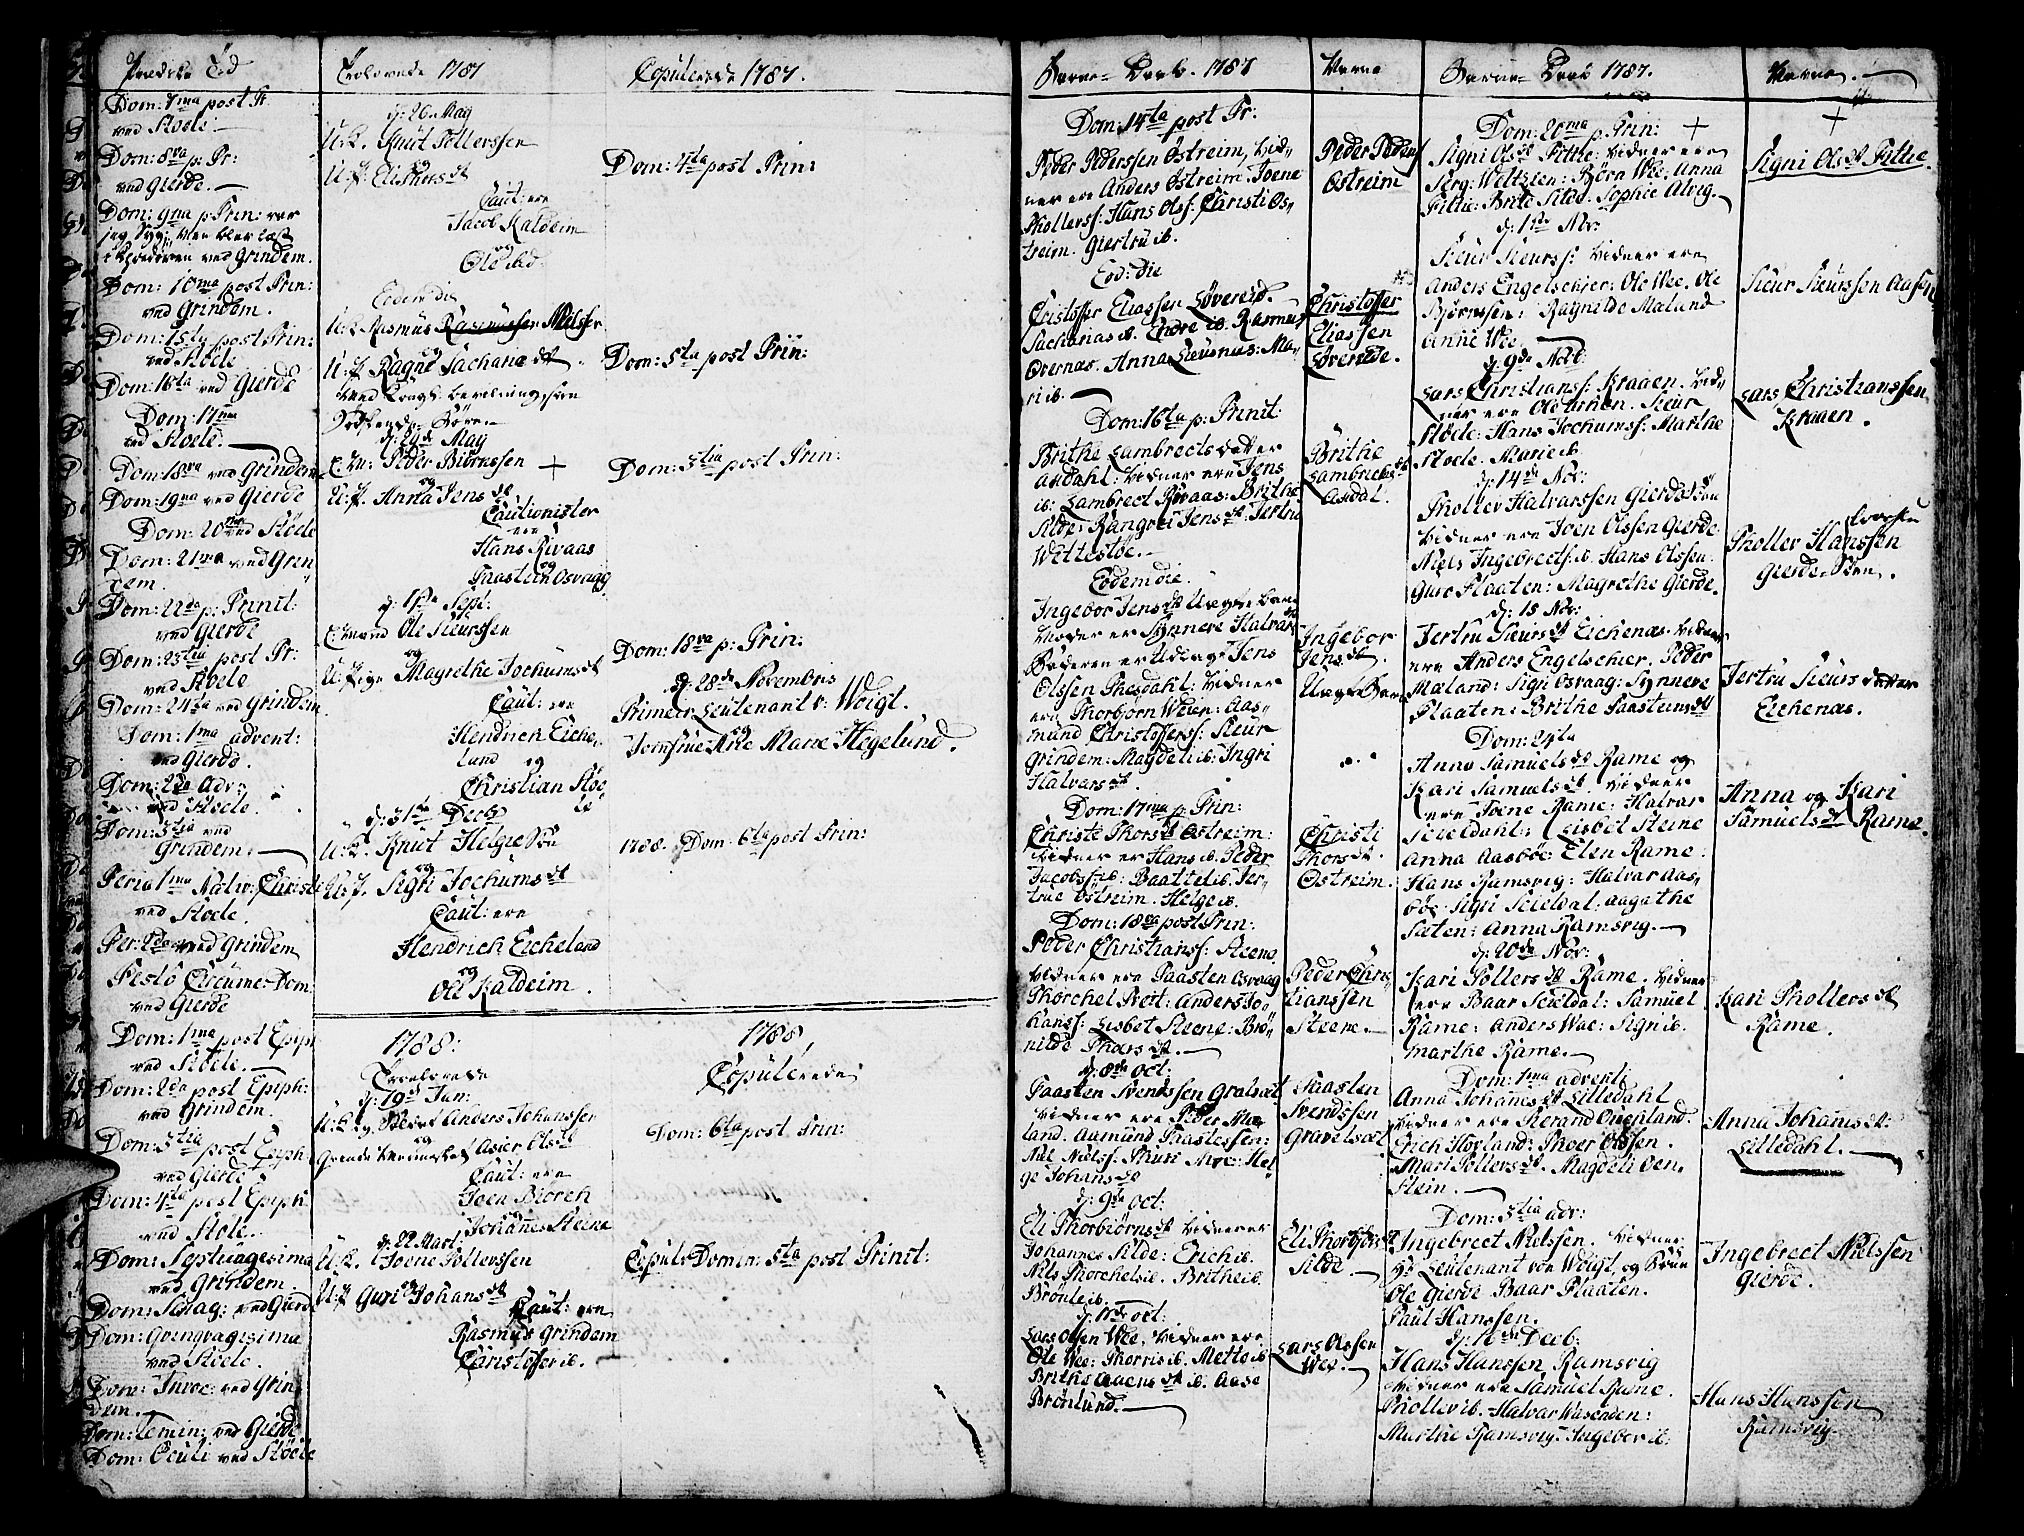 Prædike Tid
Dom: 7ma post Tr.
ved Støele.
Dom: 8va p: Tr:
ved Gierde.
Dom: 9na p: Trin: var
jeg Syg, men blev læst
ved Grindem.
Dom: 10ma post Trin:
ved Grindem.
Dom: 15ta post Trin:
ved Støele
Dom: 16ta ved Gierde
Dom: 17ma
ved Støele.
Dom: 18va ved Grindem
Dom: 19na ved Gierde
Dom: 20ma ved Støele
Dom: 21ma ved Grin
dem.
Dom: 22da p: Trinit:
ved Gierde
Dom: 23tia post Tr:
ved Støele
Dom: 24ta ved Grindem.
Dom: 1ma advent:
ved Gierde.
Dom: 2da Adv:
ved Støele.
Dom: 3tia ved
Grindem.
Feria 1ma Nativ: Christi
ved Støele.
Fer: 2da ved Grindem
Festo Circumc: Dom:
ved Gierde
Dom: 1ma post Epiph
ved Støele.
Dom: 2da post Epiph:
ved Grindem.
Dom: 3tia post Epiph
ved Gierde
Dom: 4ta post Epiph.
ved Støle.
Dom: Septuagesima
ved Grindem.
Dom: Sexag: ved Gierde
Dom: Qvinqvagesima
ved Støele.
Dom: Invoc: ved Grin
dem.
Dom: Remin: ved Gierde.
Dom: Oculi ved Støele
Trolovede 1787
d: 26 Maj
U:K. Knut Tollevssen
og
U:P. Elisabet
Caut: ere
Jacob Kaldeim
og
Ole ibd.
Eodem die
U:K Rasmus Rasmussen
og
U:P. Ragne Sachariæ dt.
d: 29de Maj
E: M: Peder Biörnssen +
og
U:P. Anna Jens dt
Cautionister
ere
Hans Rivaas
og
Taasten Osvaag
d: 15de Sept:
E:mand Ole Siurssen
og
U:Pige Magrethe Jochums dt
Caut: ere
Hendrich Eiche
land og
Christian Stö
le
d: 31te Decb
U:K. Knut Helgesön
og
U:P. Sigri Jochums dt
Caut: ere
Hendrich Eicheland
og
Ole Kaldeim.
1788:
Trolovede
d: 19de Jan:
U:K og Anders Johanssen
og
Asier Ols dt
Caut: ere
Joen Biorch
og
Johannes Steine
d: 22 Mart:
U:K. Joene Tollevssen
og
U:P Guri Johans dt
Caut: ere
Rasmus Grindem
Christoffer ib.
Copulerede 1787.
Dom: 4ta post Trin:
Dom: 5ta post Trin:
Dom: 3tia post Trin:
Dom: 18va p: Trin:
d: 28de Novembris
Primeer Leutenant v: Woigt.
og
Jomfrue Ane Marie Hegelund.
1788. Dom: 6ta post Trin:
1788,
Copulerede
Dom: 6ta post Trin:
Copul: Domin: 5ta post Trinit:
Børne-Daab. 1787
Dom: 14ta post Tr:
Peder Pederssen Östreim, Vid-
ner ere Anders Östreim. Joene
Thollevss: Hans Olss: Christi Ös-
treim. Giertru ib.
Eod: die
Cristoffer Eliassen Løvereid.
Sacharias ib. Endre ib. Rasmus
Overnæs. Anna Ma-
ri ib.
Dom: 16ta p: Trinit:
Brithe Lambrects datter
Asdahl: Vidner ere Jens
ib: Lambrect Rivaas: Brithe
Silde: Rangrei Jens dt: Jertru
Wettestöe.
Eodem die.
Ingebor Jens dt Uægte barn
Moder er Synneve Halvars dt
Faderen er Udlagt Jens
Olssen Thesdahl: Vidner
ere Thorbjørn Weien: Aas-
mund Christoffers: Sieur
Grindem: Magdeli ib: Ingri
Halvars dt.
Dom: 17ma p: Trin:
Christi Thors dt Ostreim:
Vidner er Hans ib. Peder
Jacobss: ib: Baattel ib. Jer-
true Östreim. Helge ib.
Dom: 18va post Trin:
Peder Christianss: Steene
Vidner ere Taasten Osvaag
Thorchel Anders Jo-
hanss: Lisbet Steene: Brö-
nilde Thors dt.
d: 8de Oct:
Taasten Svendssen Gralsæt
Vidner ere Peder Mæ-
land. Aamund Taastessen:
Nil Nielss: Thuri Hel-
ge Johans dt
d: 9de Oct:
Eli Thorbiörns dt Vidnerer
Johannes Silde: Erich ib.
Nels Thorchels ib. Brithe ib.
Brönle ib.
d: 17de Oct:
Lars Olsen Wee, Vidner ere
Ole Wee: Thorris ib. Mette ib
Brithe dt ib. Aase
Brönlund.
Børne
Peder Peders
Östreim
Christoffer
Eliassen
Løvereide.
Brithe
Lambrechts dt
Asdal.
Ingebor
Jens dt.
Uægte Barn
Christi
Thors dt.
Ostreim.
Peder Chris-
tianssen
Steene.
Taasten
Svendssen
Gravelsæt
Eli Thorbjörns dt
Silde.
Lars Olssen
Wee.
Børne-Daab 1787.
Dom: 20ma p. Trin: +
Signi Ols dt Fithe: Vidner ere
Serg: Weltzien: Björn Wee. Anna
Fithie: Brite Silde: Sophie Alvig.
d: 1ste Nov:
Sieur Sieurss: Vidner ere
Anders Engelschier: Ole Wee. Ole
Björnssen: Ragnilde Maland
Anne Wee
d: 9de Nob:
Lars Christianss: Kraaen. Vid-
ner ere Ole Sieur
Støele: Hans Jochumss: Marthe
Støele: Marie ib.
d: 14de Nov:
Thollev Halvarssen Gierdestøen
Vidner ere Joen Olssen Gierde
Niels Ingebreets: ib. Hans Olssen:
Guro Plaaten: Magrethe Gierde.
d: 15 Nov:
Jertru Sieurs dt Eichenæs. Vidner
ere Anders Engelschier. Peder
Mæland: Sigri Osvaag: Synneve
Plaaten: Brithe Taasteins dt
Dom: 24ta
Anna Samuels dt Rame og
Kari Samuels dt. Vidner
ere Joene Rame: Halvar
Scieldahl: Lisbet Steine
Anna Aasböe: Elen Rame:
Hans Ramsvig: Halvar Aas-
böe: Sigri Scieldal: Aagathe
Sæten: Anna Ramsvig.
d: 20de Nov:
Kari Tollevs dt Rame. Vidner
ere Baar Scieldal: Samuel
Rame: Anders Wae: Signi ib.
Marthe Rame.
Dom: 1ma advent:
Anna Johanes dt Lilledahl
Vidner ere
Erich Hovland: Thoer Olssen.
Mari Tollevs dt. Magdeli Øen,
Stein.
Dom: 3tia adv:
Ingebrect Nielssen. Vidner
Hr Leutenant von Woigt, og Frue
Ole Gierde Baar Plaaten.
Paul Hanssen.
d: 16de Decb:
Hans Hanssen Ramsvig
Vidner ere Samuel Rame.
Thollev ib. Halvar Wasenden:
Marthe Ramsvig. Ingebor ib:
Børne.
+
Signi Ols dt Fithe.
Sieur Sieurssen
Lars Christianssen
Kraaen.
Thollev Hanssen
Gierde-Støen.
Jertru Sieurs datter
Eichenæs.
Anna og Kari
Samuels dt Rame.
Kari Thollevs dt
Rame.
Anna Johanis dt:
Lilledahl.
Ingebrect Nielssen
Gierde.
Hans Hanssen
Ramsvig.